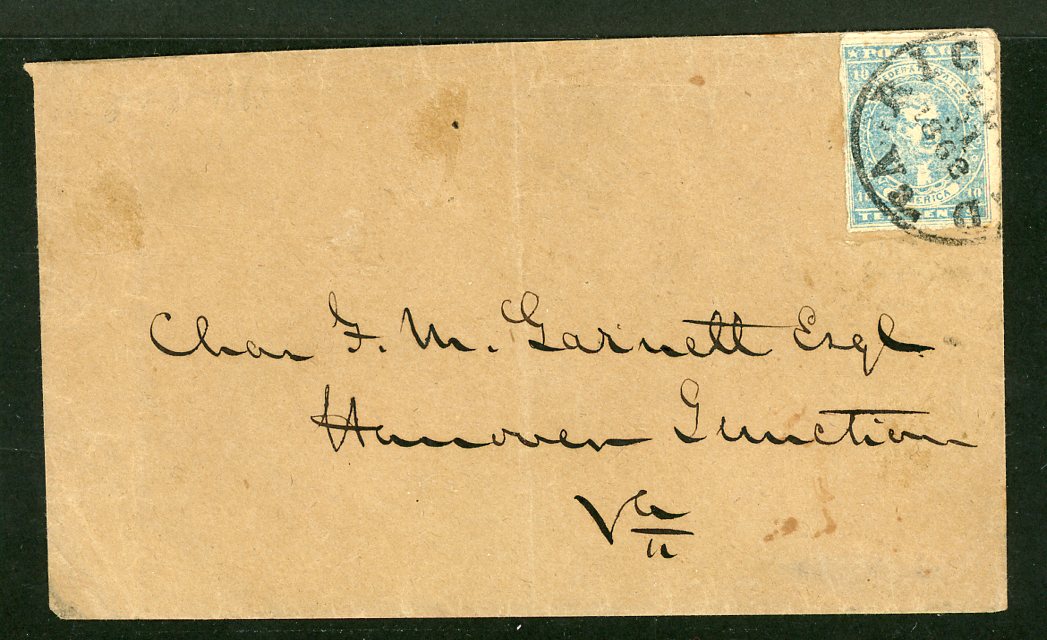 POSTAGE
10 10
CONFEDERATE STATES
OF AMERICA
10 10
TEN CENTS
RICHMOND
VA.
1862
Chas F. M. Garnett Esqr
Hanover Junction
Va